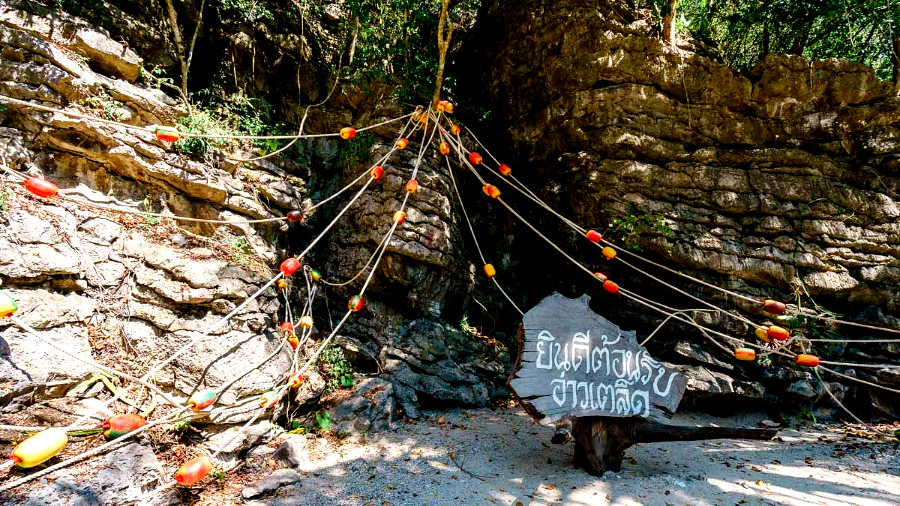 ยินดีต้อนรับ
อ่าวเตล็ด